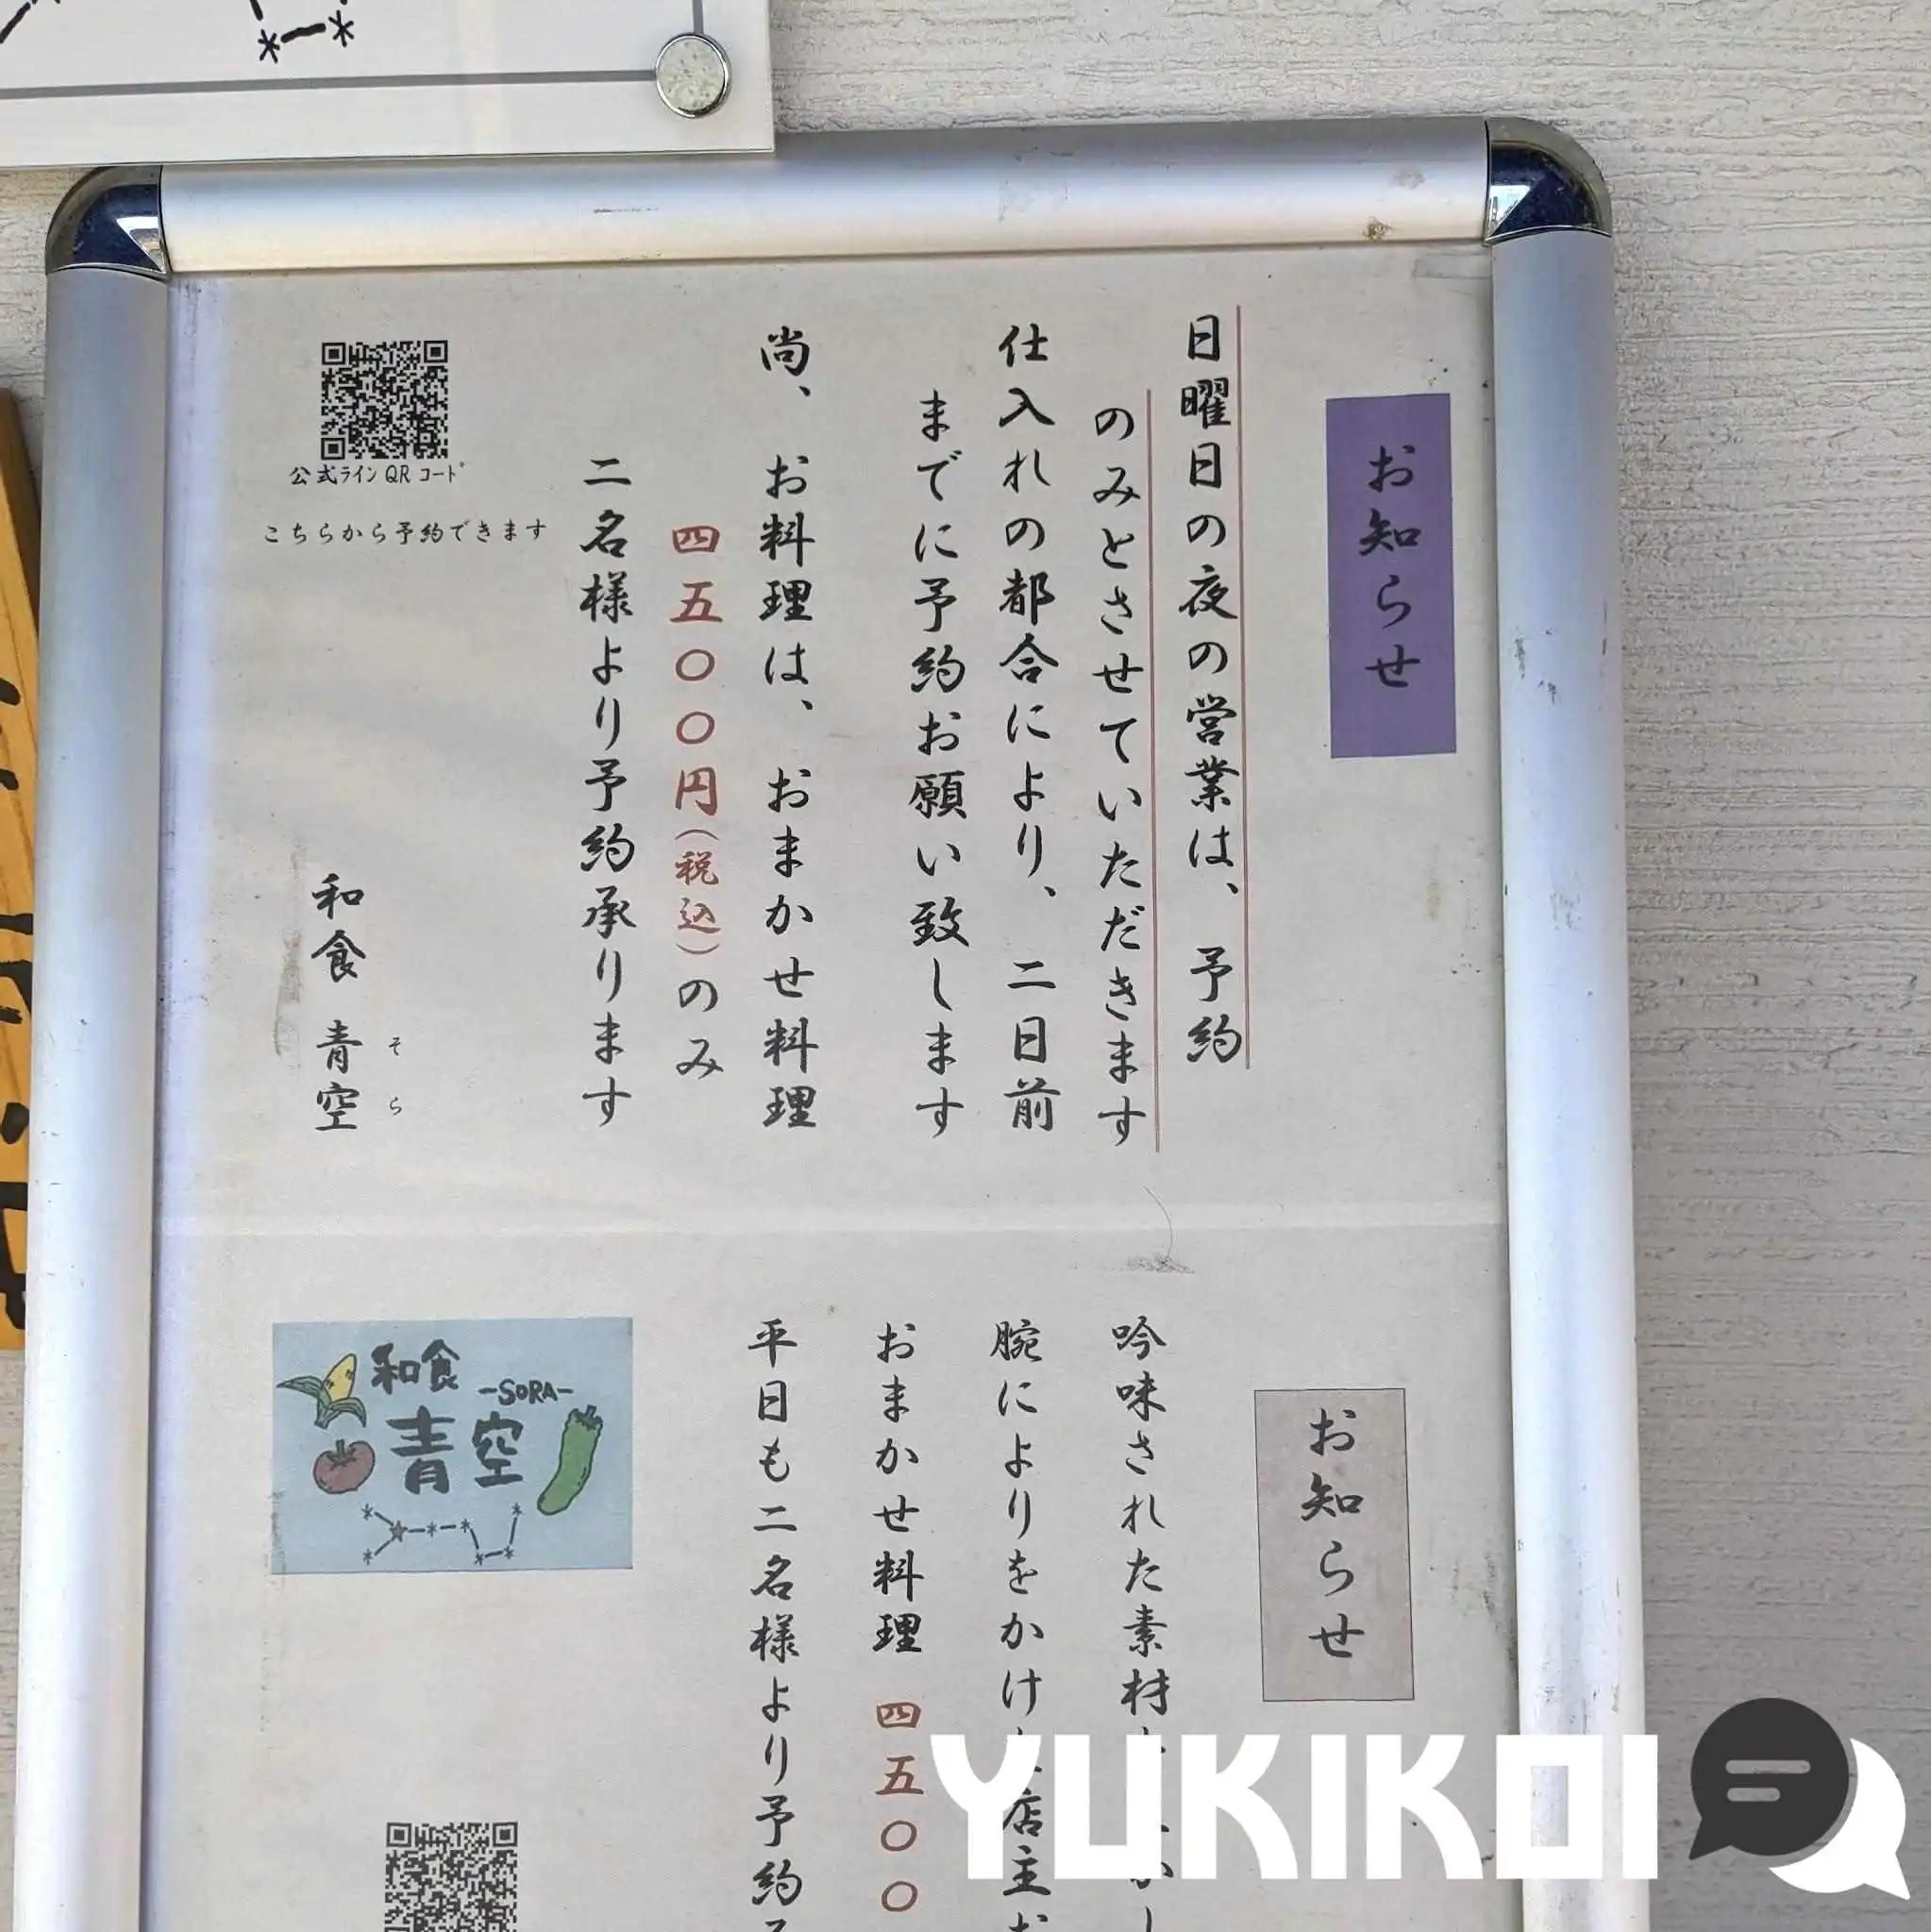 お知らせ
日曜日の夜の営業は、予約
のみとさせていただきます
仕入れの都合により、二日前
までに予約お願い致します
尚、お料理は、おまかせ料理
四五〇〇円(税込)のみ
二名様より予約承ります
公式ラインQRコード
こちらから予約できます
和食 青空
そら
お知らせ
吟味された素材
腕によりをかけ
店主お
おまかせ料理 四五〇〇
平日も二名様より予約
和食
-SORA-
青空
YUKIKOI